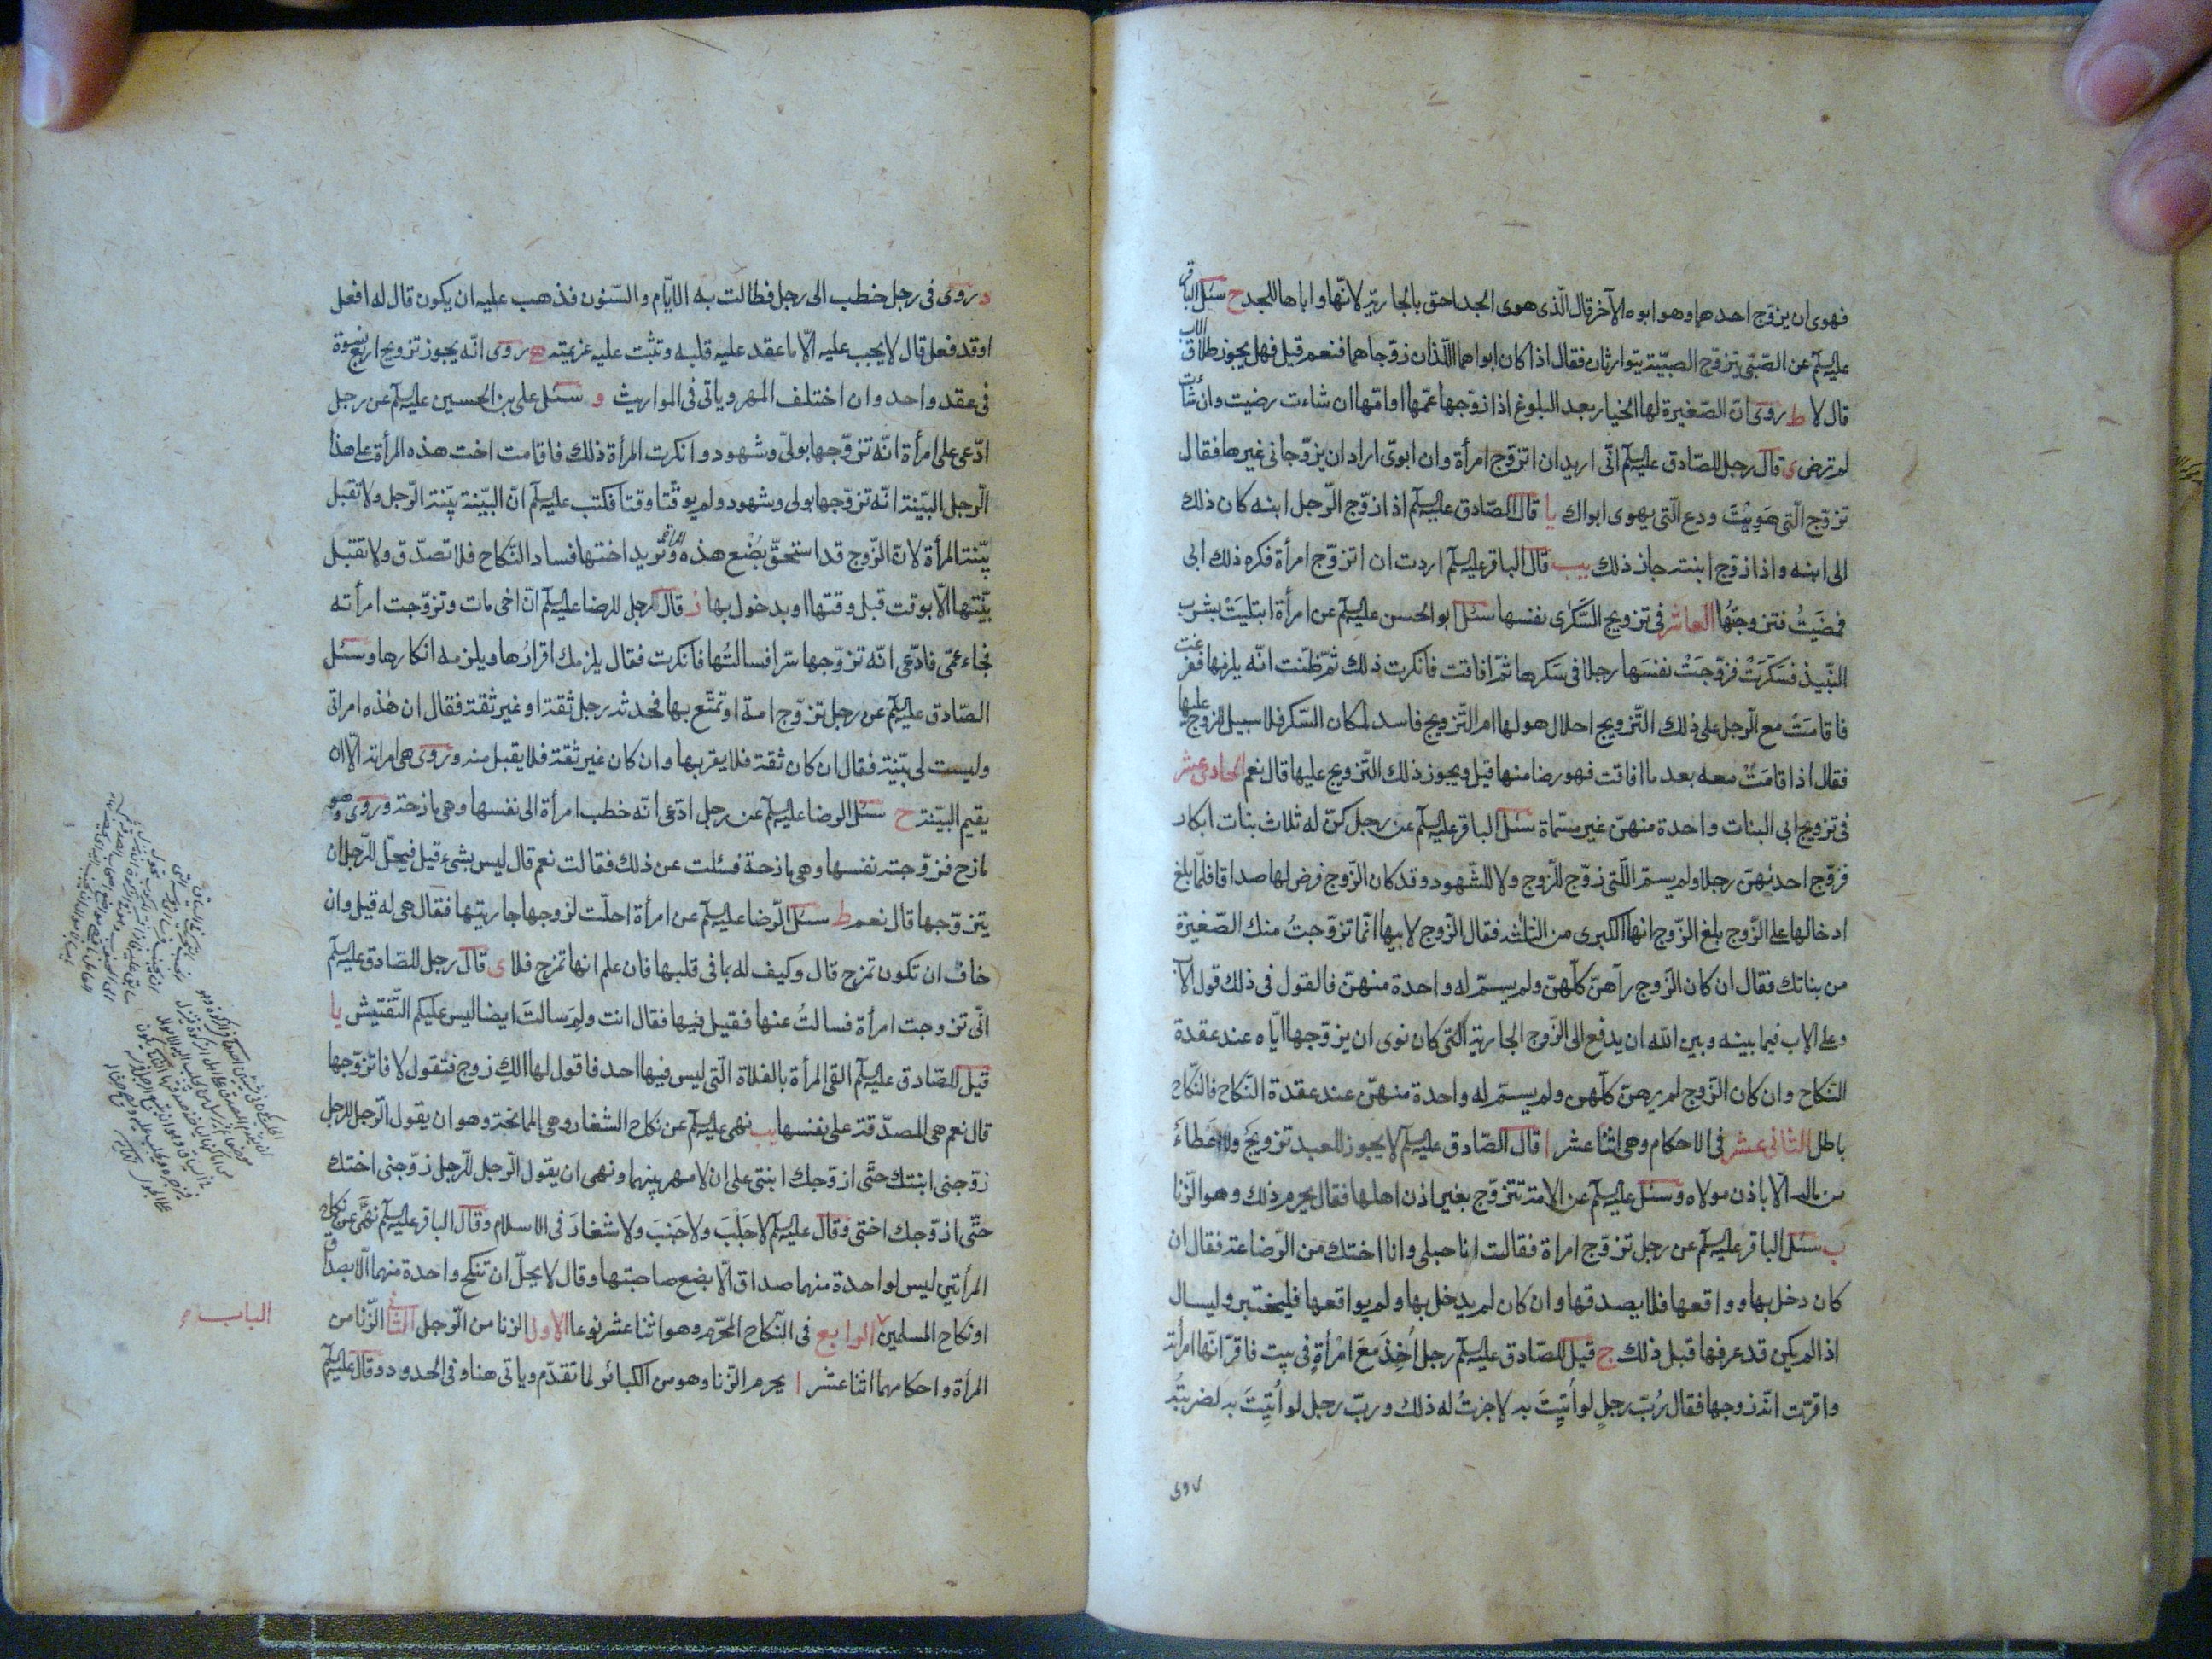 فهوى ان يزوّج احدهما وهو ابوه الآخر قال الّذى هوى الجد احق بالجارية لانّها واباها للجد ح سئل الباقر
عليه السلم عن الصّبى يتزوّج الصبيّة يتوارثان فقال اذا كان ابواهما اللّذان زوّجاهما فنعم قيل فهل يجوز طلاق الاب
قال لا ط روى انّ الصّغيرة لها الخيار بعد البلوغ اذا زوّجها عمّها او امّها ان شاءت رضيت وان شائت
لم ترض ى قال رجل للصّادق عليه السلم انّى اريد ان اتزوّج امرأة وان ابوىّ ارادا ان يزوّجانى غيرها فقال
تزوّج الّتى هَوِيْتَ ودع الّتى يهوى ابواك يا قال الصّادق عليه السلم اذا زوّج الرّجل ابنه كان ذلك
الى ابنه واذا زوّج ابنته جاز ذلك يب قال الباقر عليه السلم اردت ان اتزوّج امرأة فكره ذلك ابى
فمضَيتُ فتزوجتُها العاشر فى تزويج السَّكرى نفسها سئل ابو الحسن عليه السلم عن امرأة ابتليَتْ بشرب
النّبيذ فسَكَرَتْ فزوّجَتْ نفسَها رجلا فى سَكرها ثمّ افاقت فانكرت ذلك ثمّ ظنّت انّه يلزمها ففزعت
فاقامَتْ مع الرّجل على ذلك التّزويج احلال هو لها ام التّزويج فاسد لمكان السّكر فلا سبيل للزوج عليها
فقال اذا اقامَتْ معه بعد ما افاقت فهو رضا منها قيل ويجوز ذلك التّزويج عليها قال نعم الحادى عشر
فى تزويج ابى البنات واحدة منهنّ غير مسمّاة سئل الباقر عليه السلم عن رجل كنّ له ثلاث بنات ابكار
فزوّج احديهنّ رجلا ولم يسمّ الّتى زوّج للزّوج ولا للشّهود وقد كان الزّوج فرض لها صداقا فلمّا بلغ
ادخالها على الزّوج بلغ الزّوج انها الكبرى من الثلثة فقال الزّوج لابيها انّما تزوّجتُ منك الصّغيرة
من بناتك فقال ان كان الزّوج رآهنّ كلّهنّ ولم يسمّ له واحدة منهنّ فالقول فى ذلك قول الاب
وعلى الاب فيما بينه وبين الله ان يدفع الى الزّوج الجارية الّتى كان نوى ان يزوّجها ايّاه عند عقدة
النّكاح وان كان الزّوج لم يرهنّ كلّهن ولم يسمّ له واحدة منهنّ عند عقدة النّكاح فالنّكاح
باطل الثانى عشر فى الاحكام وهى اثنا عشر ا قال الصّادق عليه السلم لا يجوز للعبد تزويجَ ولا اعطاءَ
من ماله الّا باذن مولاه وسئل عليه السلم عن الامة تتزوّج بغير اذن اهلها فقال يحرم ذلك وهو الزّنا
ب سئل الباقر عليه السلم عن رجل تزوّج امراة فقالت انا حبلى وانا اختك من الرّضاعة فقال ان
كان دخل بها وواقعها فلا يصدقها وان كان لم يدخل بها ولم يواقعها فليختبر وليسال
اذا لم يكن قد عرفها قبل ذلك ج قيل للصّادق عليه السلم رجل اُخِذَ مَعَ امْرأةٍ فى بيت فاقرّ انّها امرأته
واقرّت انّه زوجها فقال رُبّ رجلٍ لو اُتِيْتَ به لاجزتُ له ذلك وربّ رجل لو اُتِيْتَ به لضربتُه
د روى فى رجل خطب الى رجل فطالت به الايّام والسّنون فذهب عليه ان يكون قال له افعل
او قد فعل قال لا يجب عليه الّا ما عقد عليه قلبه وتثبت عليه عزيمته ه روى انّه يجوز تزويج اربع نسوة
فى عقد واحد وان اختلف المهر وياتى فى المواريث و سئل على بن الحسين عليه السلم عن رجل
ادّعى على امرأة انّه تزوّجها بولىّ وشهود وانكرت المرأة ذلك فاقامت اخت هذه المرأة على هذا
الرّجل البيّنة انّه تزوّجها بولى وشهود ولم يوقّتا وقتا فكتب عليه السلم انّ البيّنة بيّنة الرّجل ولا تقبل
بيّنة المرأة لانّ الزّوج قد استحقّ بُضْع هذه المراة وتريد اختها فساد النّكاح فلا تصدّق ولا تقبل
بيّنتها الّا بوقت قبل وقتها او بدخول بها ز قال رجل للرضا عليه السلم انّ اخى مات وتزوّجت امرأته
فجاء عمّى فادّعى انّه تزوّجها سرّا فسالتُها فانكرت فقال يلزمك اقرارُها ويلزمه انكارها وسئل
الصّادق عليه السلم عن رجل تزوّج امة او تمتّع بها فحدثه رجل ثقة او غير ثقة فقال ان هذه امراتى
وليست لى بيّنة فقال ان كان ثقة فلا يقربها وان كان غير ثقة فلا يقبل منه وروى هى امراته الّا ان
يقيم البيّنة ح سئل الرضا عليه السلم عن رجل ادّعى انّه خطب امرأة الى نفسها وهى مازحة وروى وهو
مازح فزوّجته نفسها وهى مازحة فسئلت عن ذلك فقالت نعم قال ليس بشىء قيل فيحلّ للرّجل ان
يتزوّجها قال نعم ط سئل الرّضا عليه السلم عن امرأة احلّت لزوجها جاريتها فقال هى له قيل وان
خاف ان تكون تمزح قال وكيف له بما فى قلبها فان علم انها تمزح فلا ى قال رجل للصّادق عليه السلم
انّى تزوجت امرأة فسالتُ عنها فقيل فيها فقال انت ولِمَ سالتَ ايضا ليس عليكم التّفتيش يا
قيل للصّادق عليه السلم القى المرأة بالفلاة الّتى ليس فيها احد فاقول لها الكِ زوج فتقول لا فاتزوّجها
قال نعم هى المصدّقة على نفسها يب نهى عليه السلم عن نكاح الشغار وهى الممانحة وهو ان يقول الرّجل للرجل
زوّجنى ابنتك حتّى ازوّجك ابنتى على ان لا مهر بينهما ونهى ان يقول الرّجل للرّجل زوّجنى اختك
حتّى ازوّجك اختى وقال عليه السلم لا جَلَبَ ولا جَنَبَ ولا شغارَ فى الاسلام وقال الباقر عليه السلم نهى عن نكاح
المرأتين ليس لواحدة منهما صداق الّا بضع صاحبتها وقال لا يحلّ ان تنكح واحدة منهما الّا بصداق
او نكاح المسلمين الرابع فى النّكاح المحّرم وهو اثنا عشر نوعا الاول الزنا من الرّجل الثانى الزّنا من
المرأة واحكامهما اثنا عشر ا يحرم الزّنا وهو من الكبائر لما تقدّم وياتى هنا وفى الحدود وقال عليه السلم
الباب